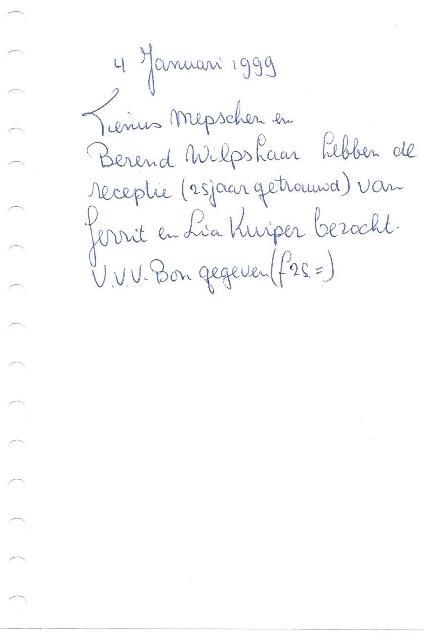 4 Januari 1999
Tienius Mepschen en
Berend Wilpshaar hebben de
receptie (25 jaar getrouwd) van
Gerrit en Lia Kuiper bezocht.
V.V.V. Bon gegeven (f 25.=)